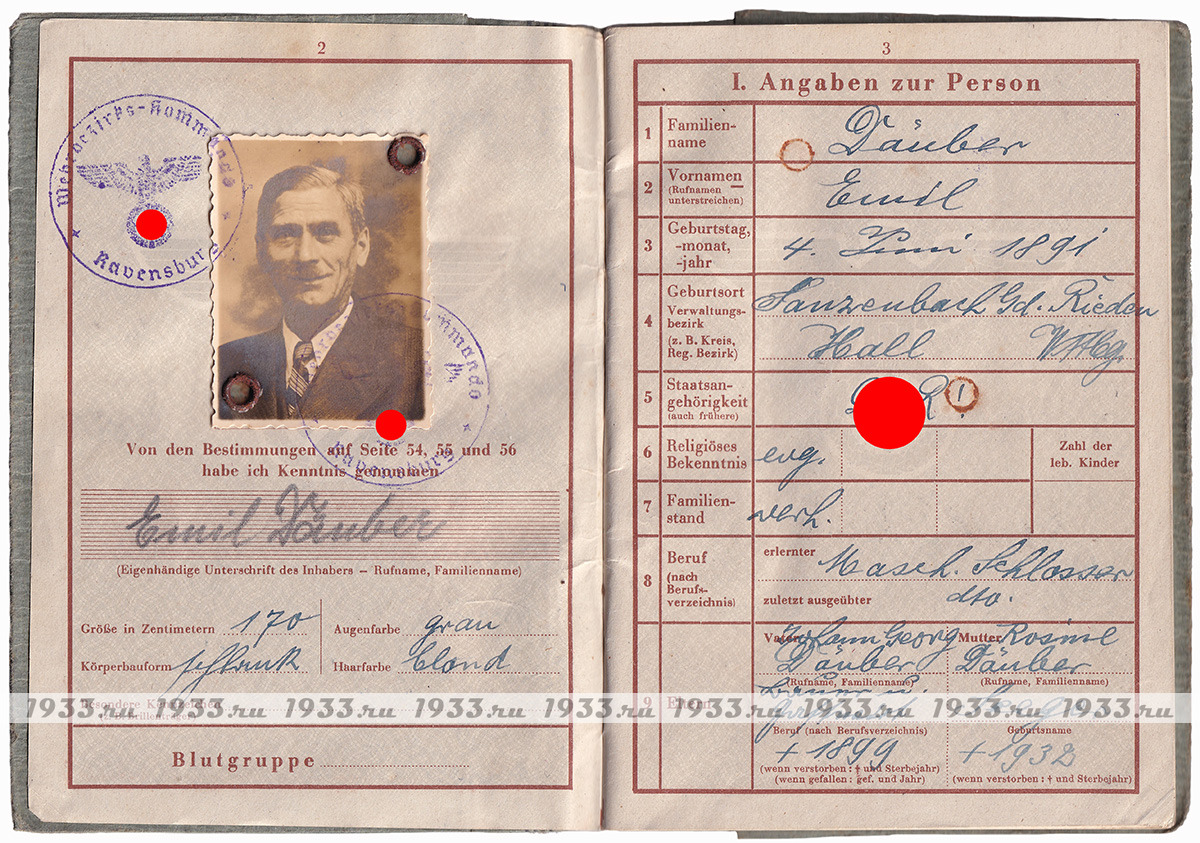 2
Wehrbezirks-Kommando
Ravensburg
mmando
Ravensburg
Von den Bestimmungen auf Seite 54, 55 und 56
habe ich Kenntnis genommen
Emil Däuber
(Eigenhändige Unterschrift des Inhabers – Rufname, Familienname)
Größe in Zentimetern 170 Augenfarbe grau
Körperbauform schlank Haarfarbe blond
Besondere Kennzeichen
(z. B. Brillenträger)
Blutgruppe
3
I. Angaben zur Person
1 Familien-
name
Däuber
2 Vornamen
(Rufnamen
unterstreichen)
Emil
3 Geburtstag,
-monat,
-jahr
4. Juni 1891
4 Geburtsort
Verwaltungs-
bezirk
(z. B. Kreis,
Reg. Bezirk)
Sanzenbach Gd. Rieden
Hall Wttbg
5 Staatsan-
gehörigkeit
(auch frühere)
D. R. !
6 Religiöses
Bekenntnis
evg.
Zahl der
leb. Kinder
7 Familien-
stand
verh.
8 Beruf
(nach
Berufs-
verzeichnis)
erlernter Masch. Schlosser
zuletzt ausgeübter dto.
9 Eltern
Vater Johann Georg Mutter Rosine
Däuber Däuber
(Rufname, Familienname) (Rufname, Familienname)
Bauer u.
Beruf (nach Berufsverzeichnis) Geburtsname
+ 1899 + 1932
(wenn verstorben: † und Sterbejahr) (wenn verstorben: † und Sterbejahr)
(wenn gefallen: gef. und Jahr)
1933.ru 1933.ru 1933.ru 1933.ru 1933.ru 1933.ru 1933.ru 1933.ru 1933.ru